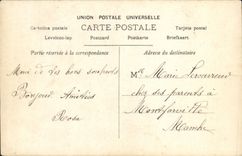 UNION POSTALE UNIVERSELLE
CARTE POSTALE
Cartolina postale
Tarjeta postal
Levelezo-lap
Postcard
Postkarte
Briefkaart
Partie réservée à la correspondance
Adresse du destinataire
de tes bons souhaits
Bonjour Amitiés
Rosa
Marie
chez ses parents à
Montfarville
Manche